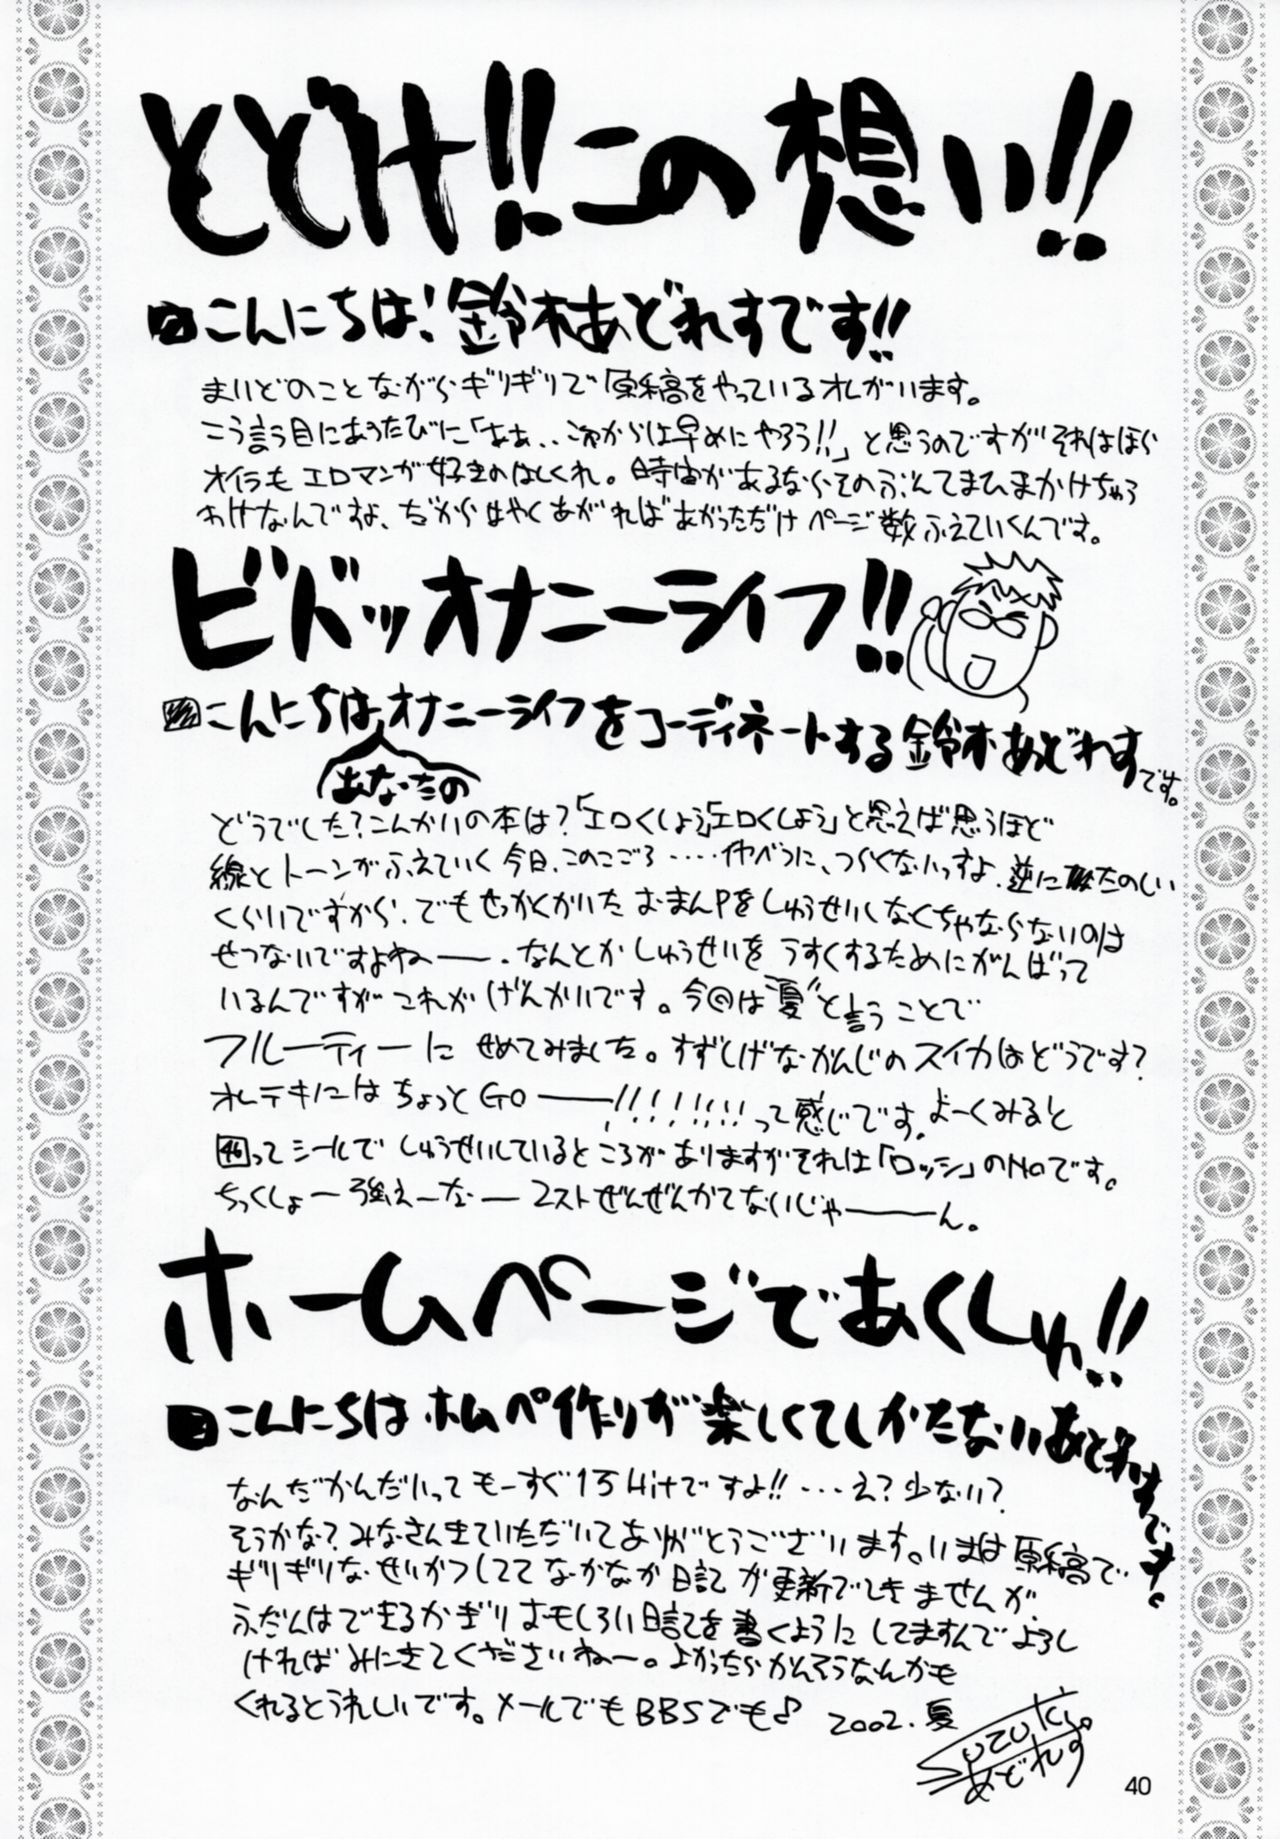 とどけ!!この想い!!
こんにちは!鈴木あどれすです!!
まいどのことながらギリギリで原稿をやっているオレがいます。
こう言う目にあうたびに「ああ、、これからは早めにやろう!!」と思うのですがそれはほら
オイラもエロマンガ好きのはしくれ。時宙があるならそのぶんてまひまかけちゃう
わけなんですよ、だからはやくあがればあがっただけページ数ふえていくんです。
ビドッオナニーライフ!!
こんにちはオナニーライフをコーディネートする鈴木あどれすです。
あなたの
どうでした?こんかいの本は?「エロくしよう」「エロくしよう」と思えば思うほど
線とトーンがふえていく今日、このごろ‥‥‥べつに、つらくないっすよ、逆にたのしい
くらいですから、でもせっかくかいたおまんPをしゅうせいしなくちゃならないのは
せつないですよねー。なんとかしゅうせいをうすくするためにがんばって
いるんですがこれがげんかいです。今回は"夏"と言うことで
フルーティーにせめてみました。すずしげなかんじのスイカはどうです?
オレテキにはちょっとGOー!!!!!!!!って感じです。よーくみると
46ってシールでしゅうせいしているところがありますがそれは「ロッシ」のNoです。
ちっくしょー強えーなー2ストぜんぜんかてないじゃーーん。
ホームページであくしゅ!!
こんにちはホムペ作りが楽しくてしかたないあどれすです。
なんだかんだいってもーすぐ15Hitですよ!!‥‥え?少ない?
そうかな?みなさんきていただいてありがとうございます。いまは原稿で
ギリギリなせいかつしててなかなか日記が更新できませんが
ふだんはできるかぎりおもしろい日記を書くようにしてますんでよろし
ければみにきてくださいねー。よかったらかんそうなんかも
くれるとうれしいです。メールでもBBSでも♪ 2002.夏
Suzuki
あどれす
40